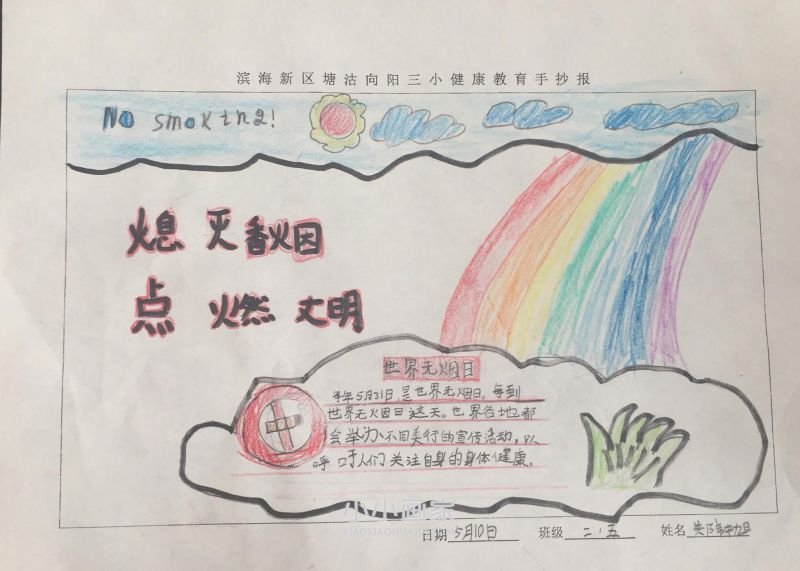 滨海新区塘沽向阳三小健康教育手抄报
No smoking!
熄灭香烟
点燃文明
世界无烟日
年5月31日是世界无烟日。每到
世界无烟日这天。世界各地都
会举办不同类行的宣传活动，以
呼吁人们关注自身的身体健康.
小小画家
XIAOXIAOHUA
日期 5月10日 班级 二.五 姓名